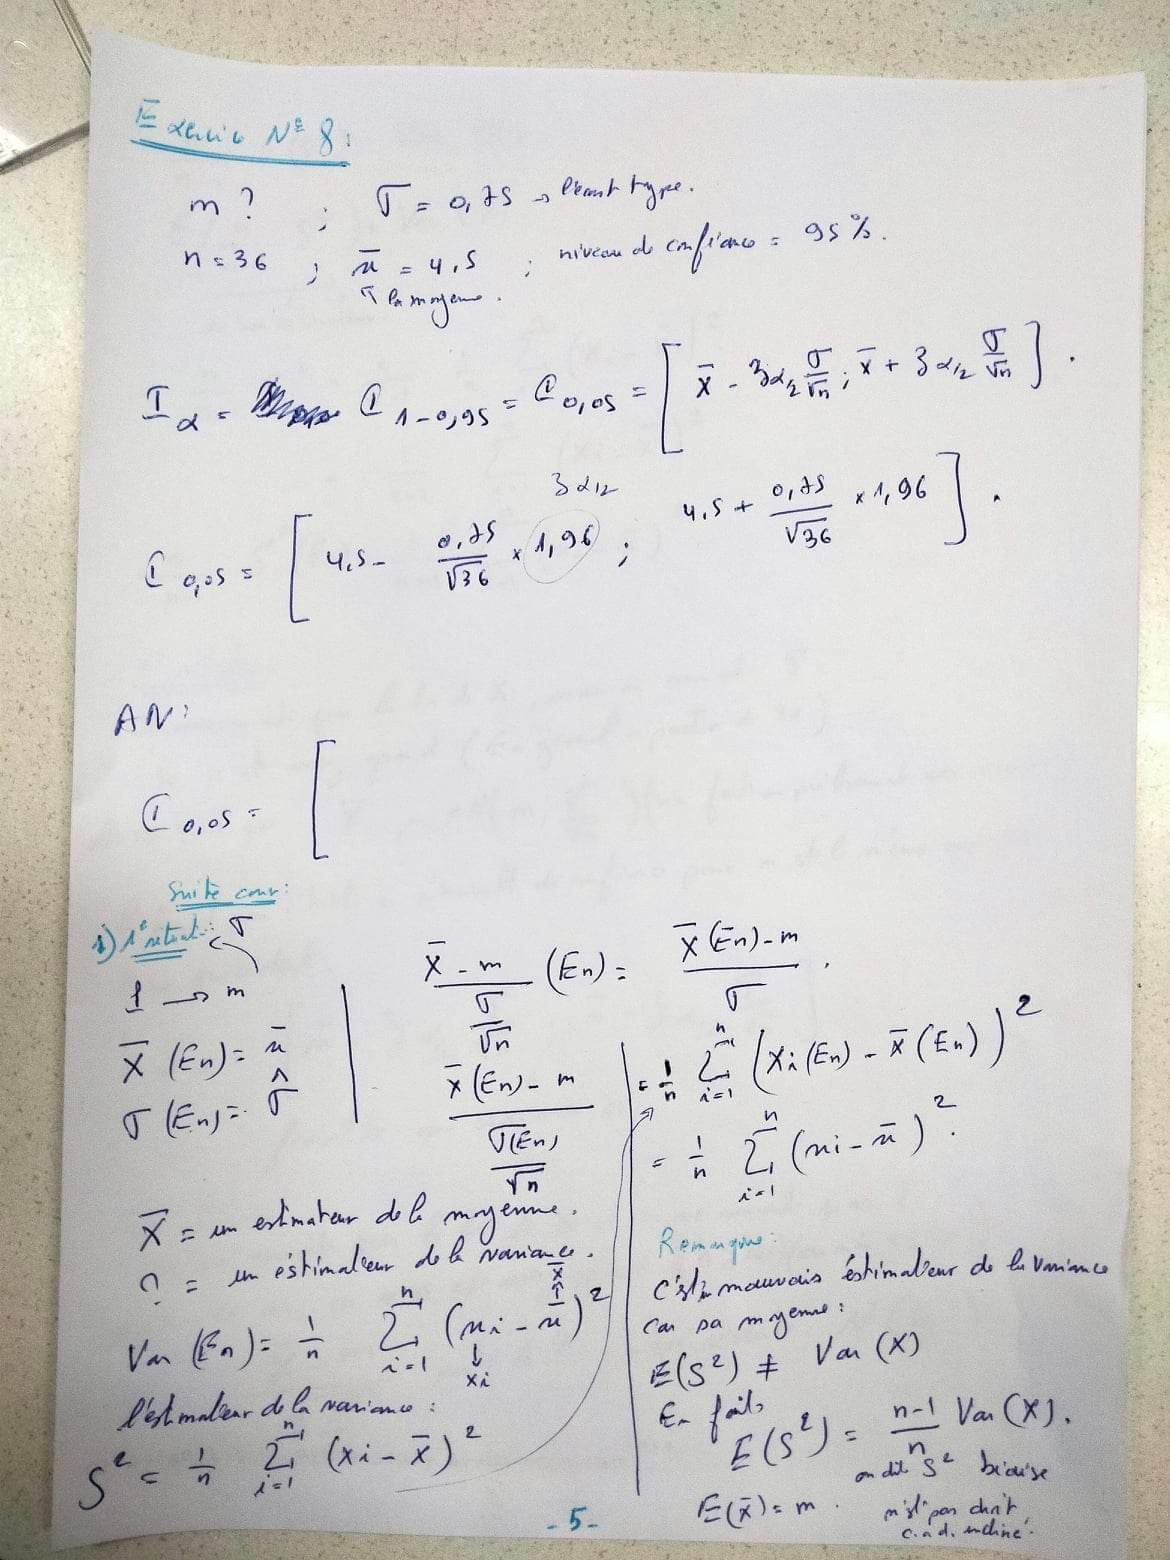 Exercice N° 8 :
m ? ; σ = 0,75 → l'écart type.
n = 36 ; x̄ = 4,5 ; niveau de confiance = 95 %.
↑ la moyenne.
I α = C 1-0,95 = C 0,05 = [ X̄ - 3α/2 σ/√n ; X̄ + 3α/2 σ/√n ] .
3α/2
C 0,05 = [ 4,5 - 0,75/√36 × 1,96 ; 4,5 + 0,75/√36 × 1,96 ] .
AN :
C 0,05 = [
Suite cour :
1) 1e situat : σ
1 → m
X̄ (En) = x̄
σ (En) = σ̂
(X̄ - m)/(σ/√n) (En) = (X̄ (En) - m)/σ .
(X̄ (En) - m)/(σ(En)/√n)
X̄ = un estimateur de la moyenne.
? = un éstimateur de la variance.
X̄
↑
Var (En) = 1/n Σ i=1 n (xi - x̄)²
↓
Xi
l'estimateur de la variance :
S² = 1/n Σ i=1 n (Xi - X̄)²
= 1/n Σ i=1 n (Xi (En) - X̄ (En))²
= 1/n Σ i=1 n (xi - x̄)² .
Remarque :
c'est un mauvais éstimateur de la variance
car sa moyenne :
E(S²) ≠ Var (X)
En fait
E(S²) = (n-1)/n Var (X).
on dit S² biaisé
E(X̄) = m .
n'est pas droit,
c.a.d. incliné.
- 5 -